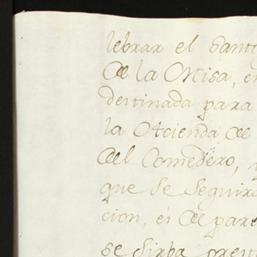 lebrar el Santo
de la Misa, en
destinada para
la Hacienda de
del Comedero, y
que se seguira
cion, es de pare
se sirba